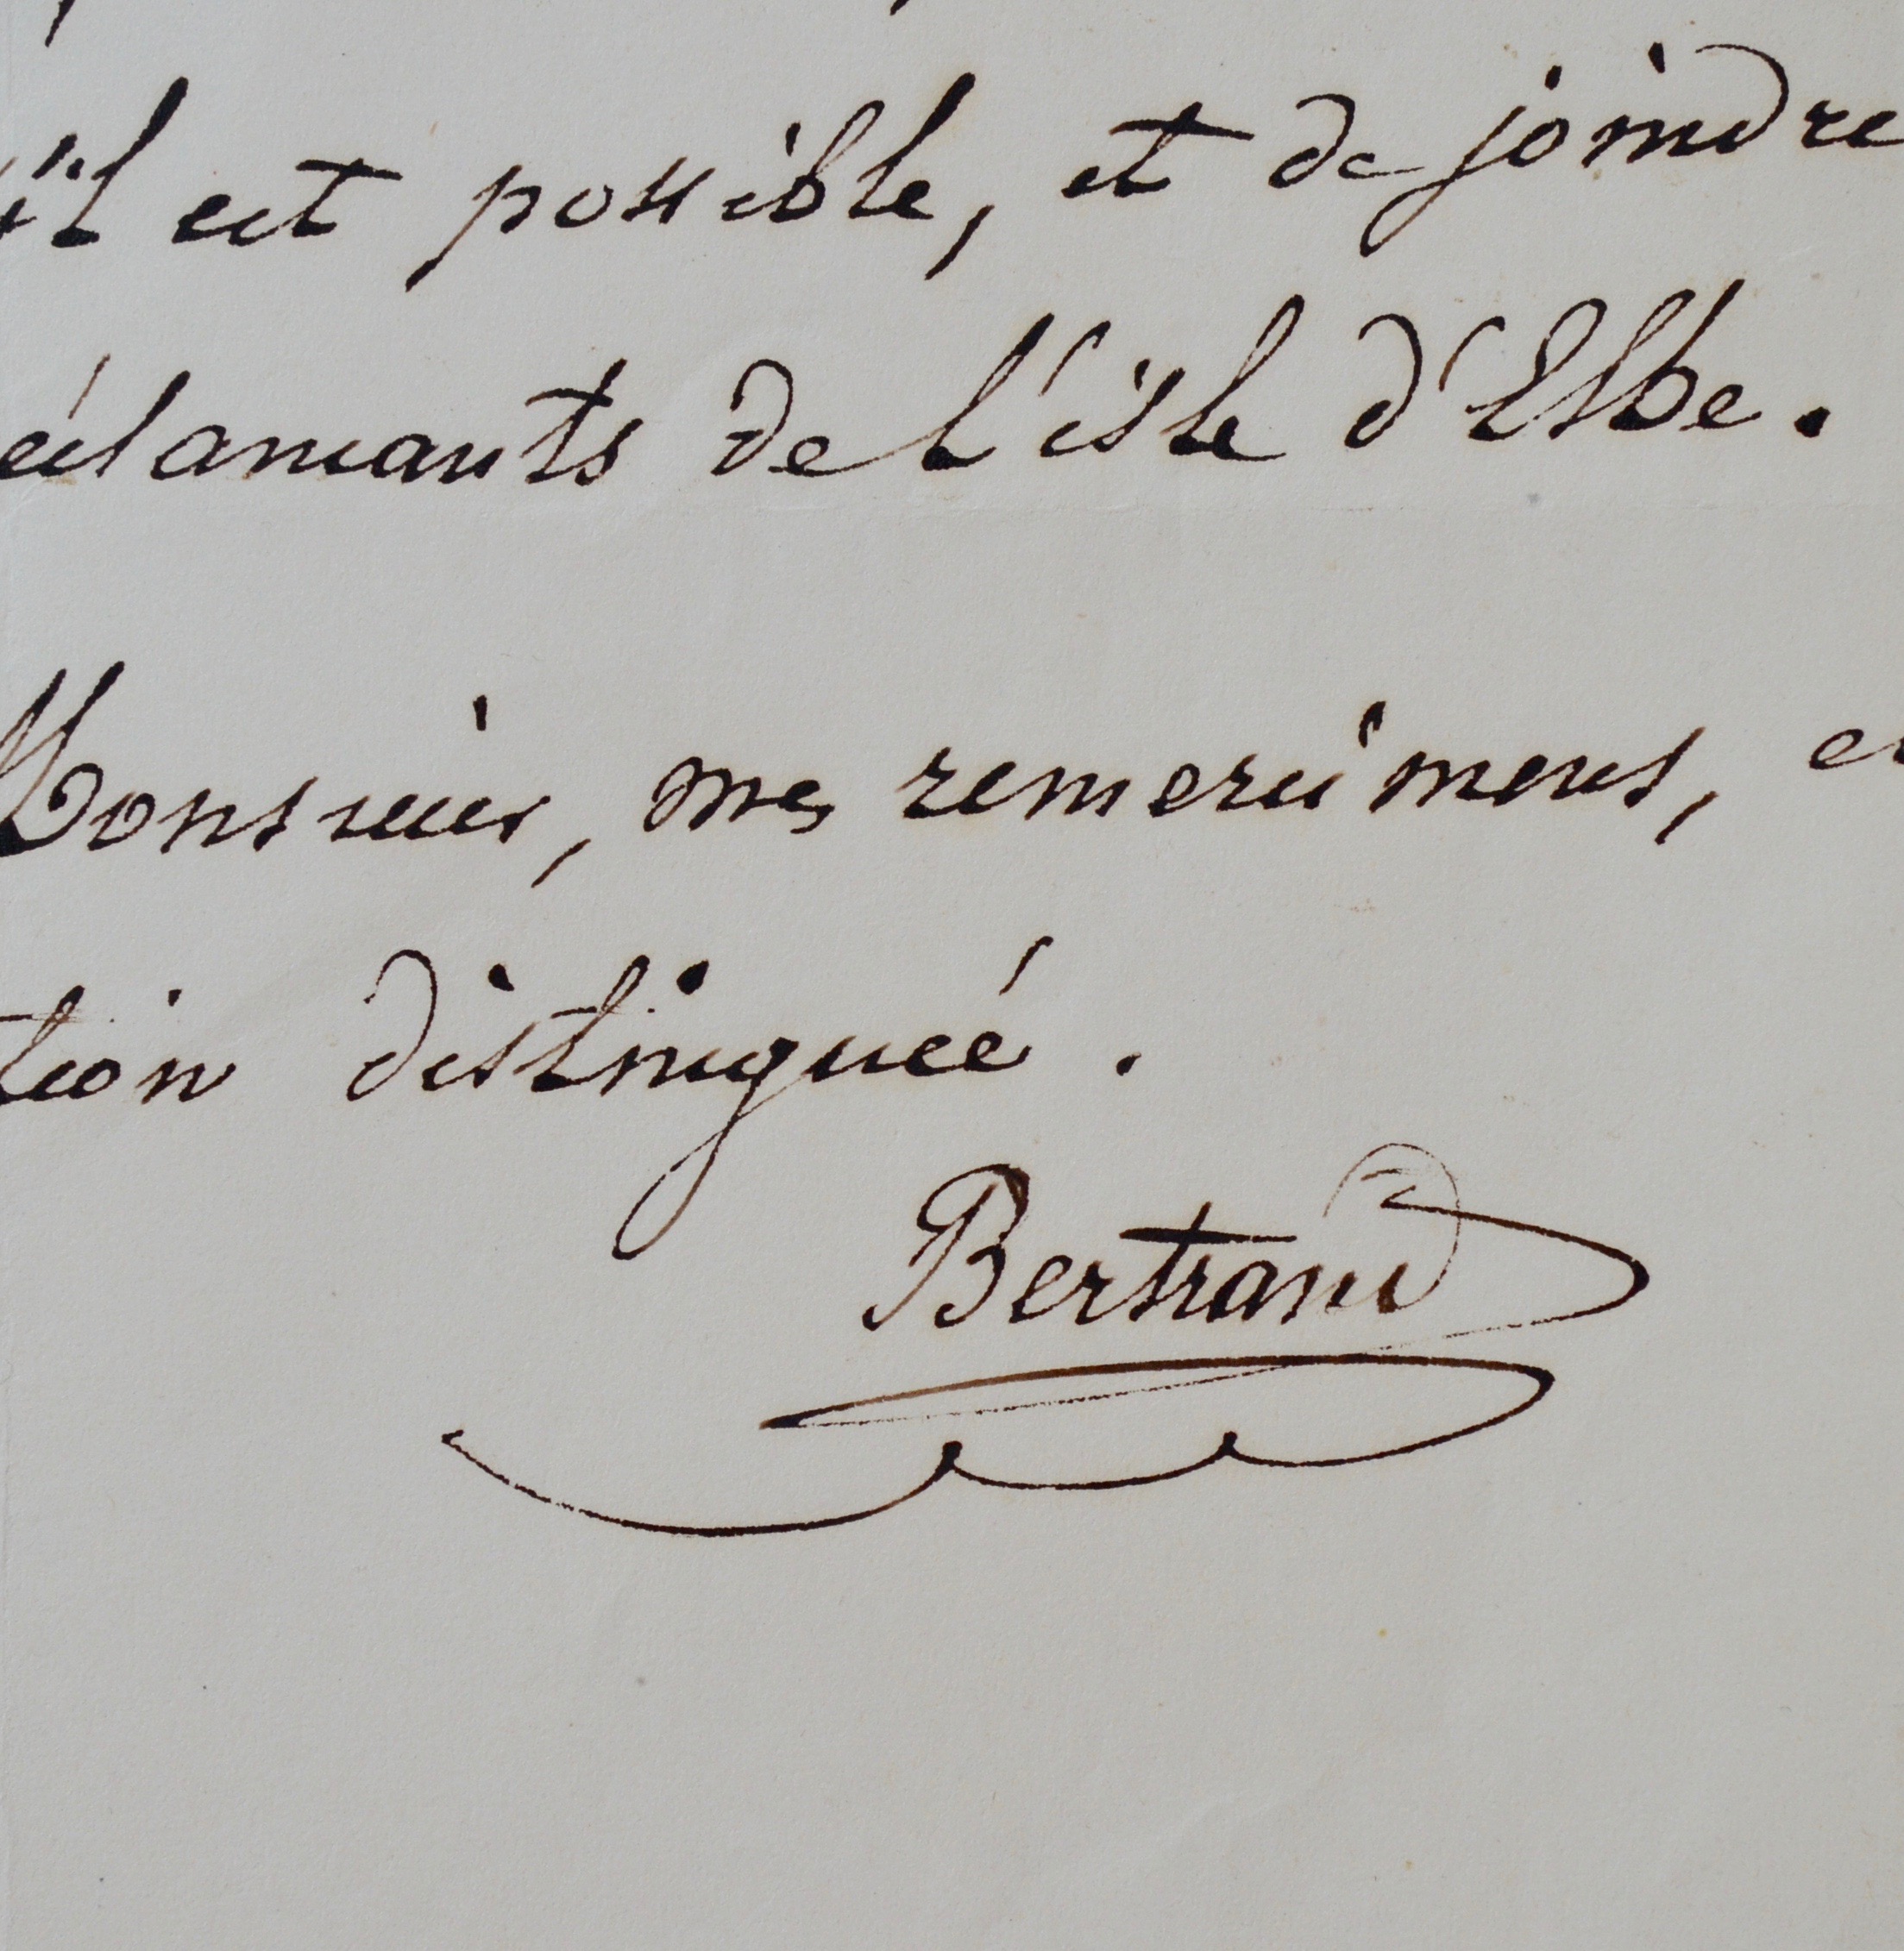 'il est possible, et de joindre
éclamants de l'isle d'Elbe.
Monsieur, mes remercimens, et
tion distinguée.
Bertrand